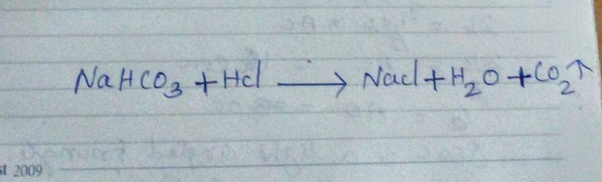 NaHCO₃ + HCl ⟶ NaCl + H₂O + CO₂↑
st 2009